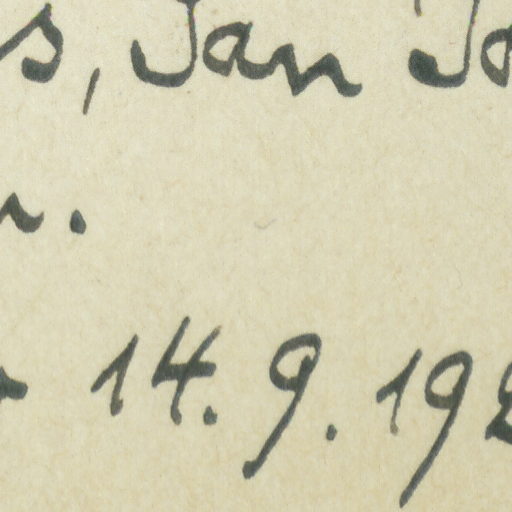 s, Jan Jo
r.
14. 9. 192